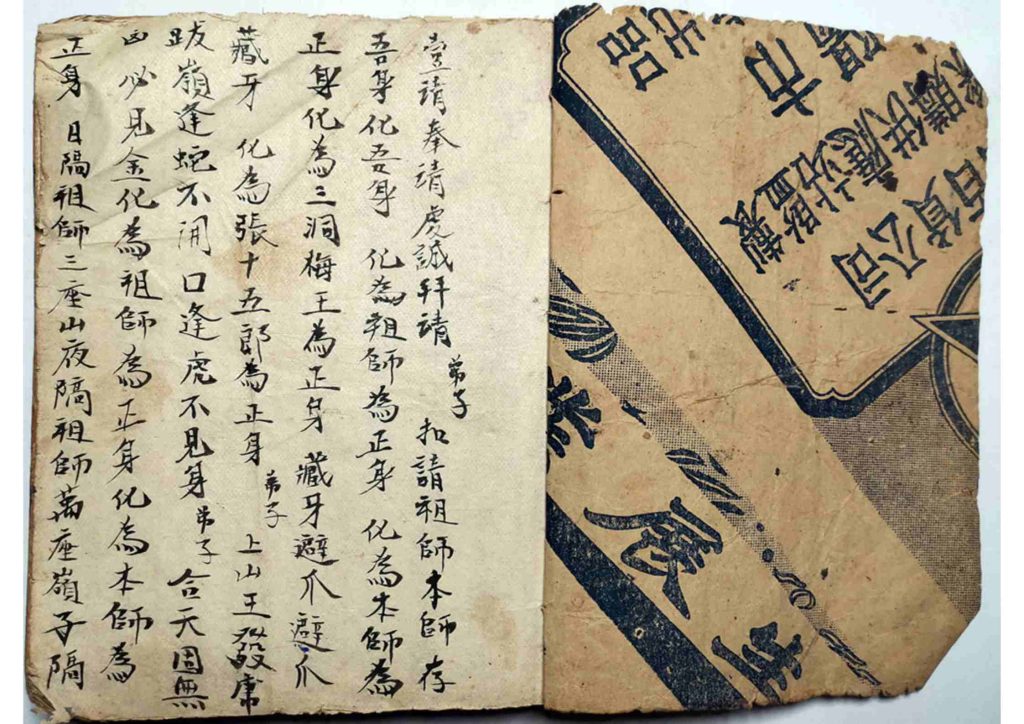 壹請奉請虔誠拜請 弟子 扣請祖師本師存
吾身化吾身 化為祖師為正身 化為本師為
正身化為三洞梅王為正身 藏牙避爪避爪
藏牙 化為張十五郎為正身 弟子 上山王發
跋嶺逢蛇不開口逢虎不見身 弟子 合天因無
凶必見金化為祖師為正身化為本師為
正身 日隔祖師三座山夜隔祖師萬座嶺子隔
品
市
供應站監製
百貨公司